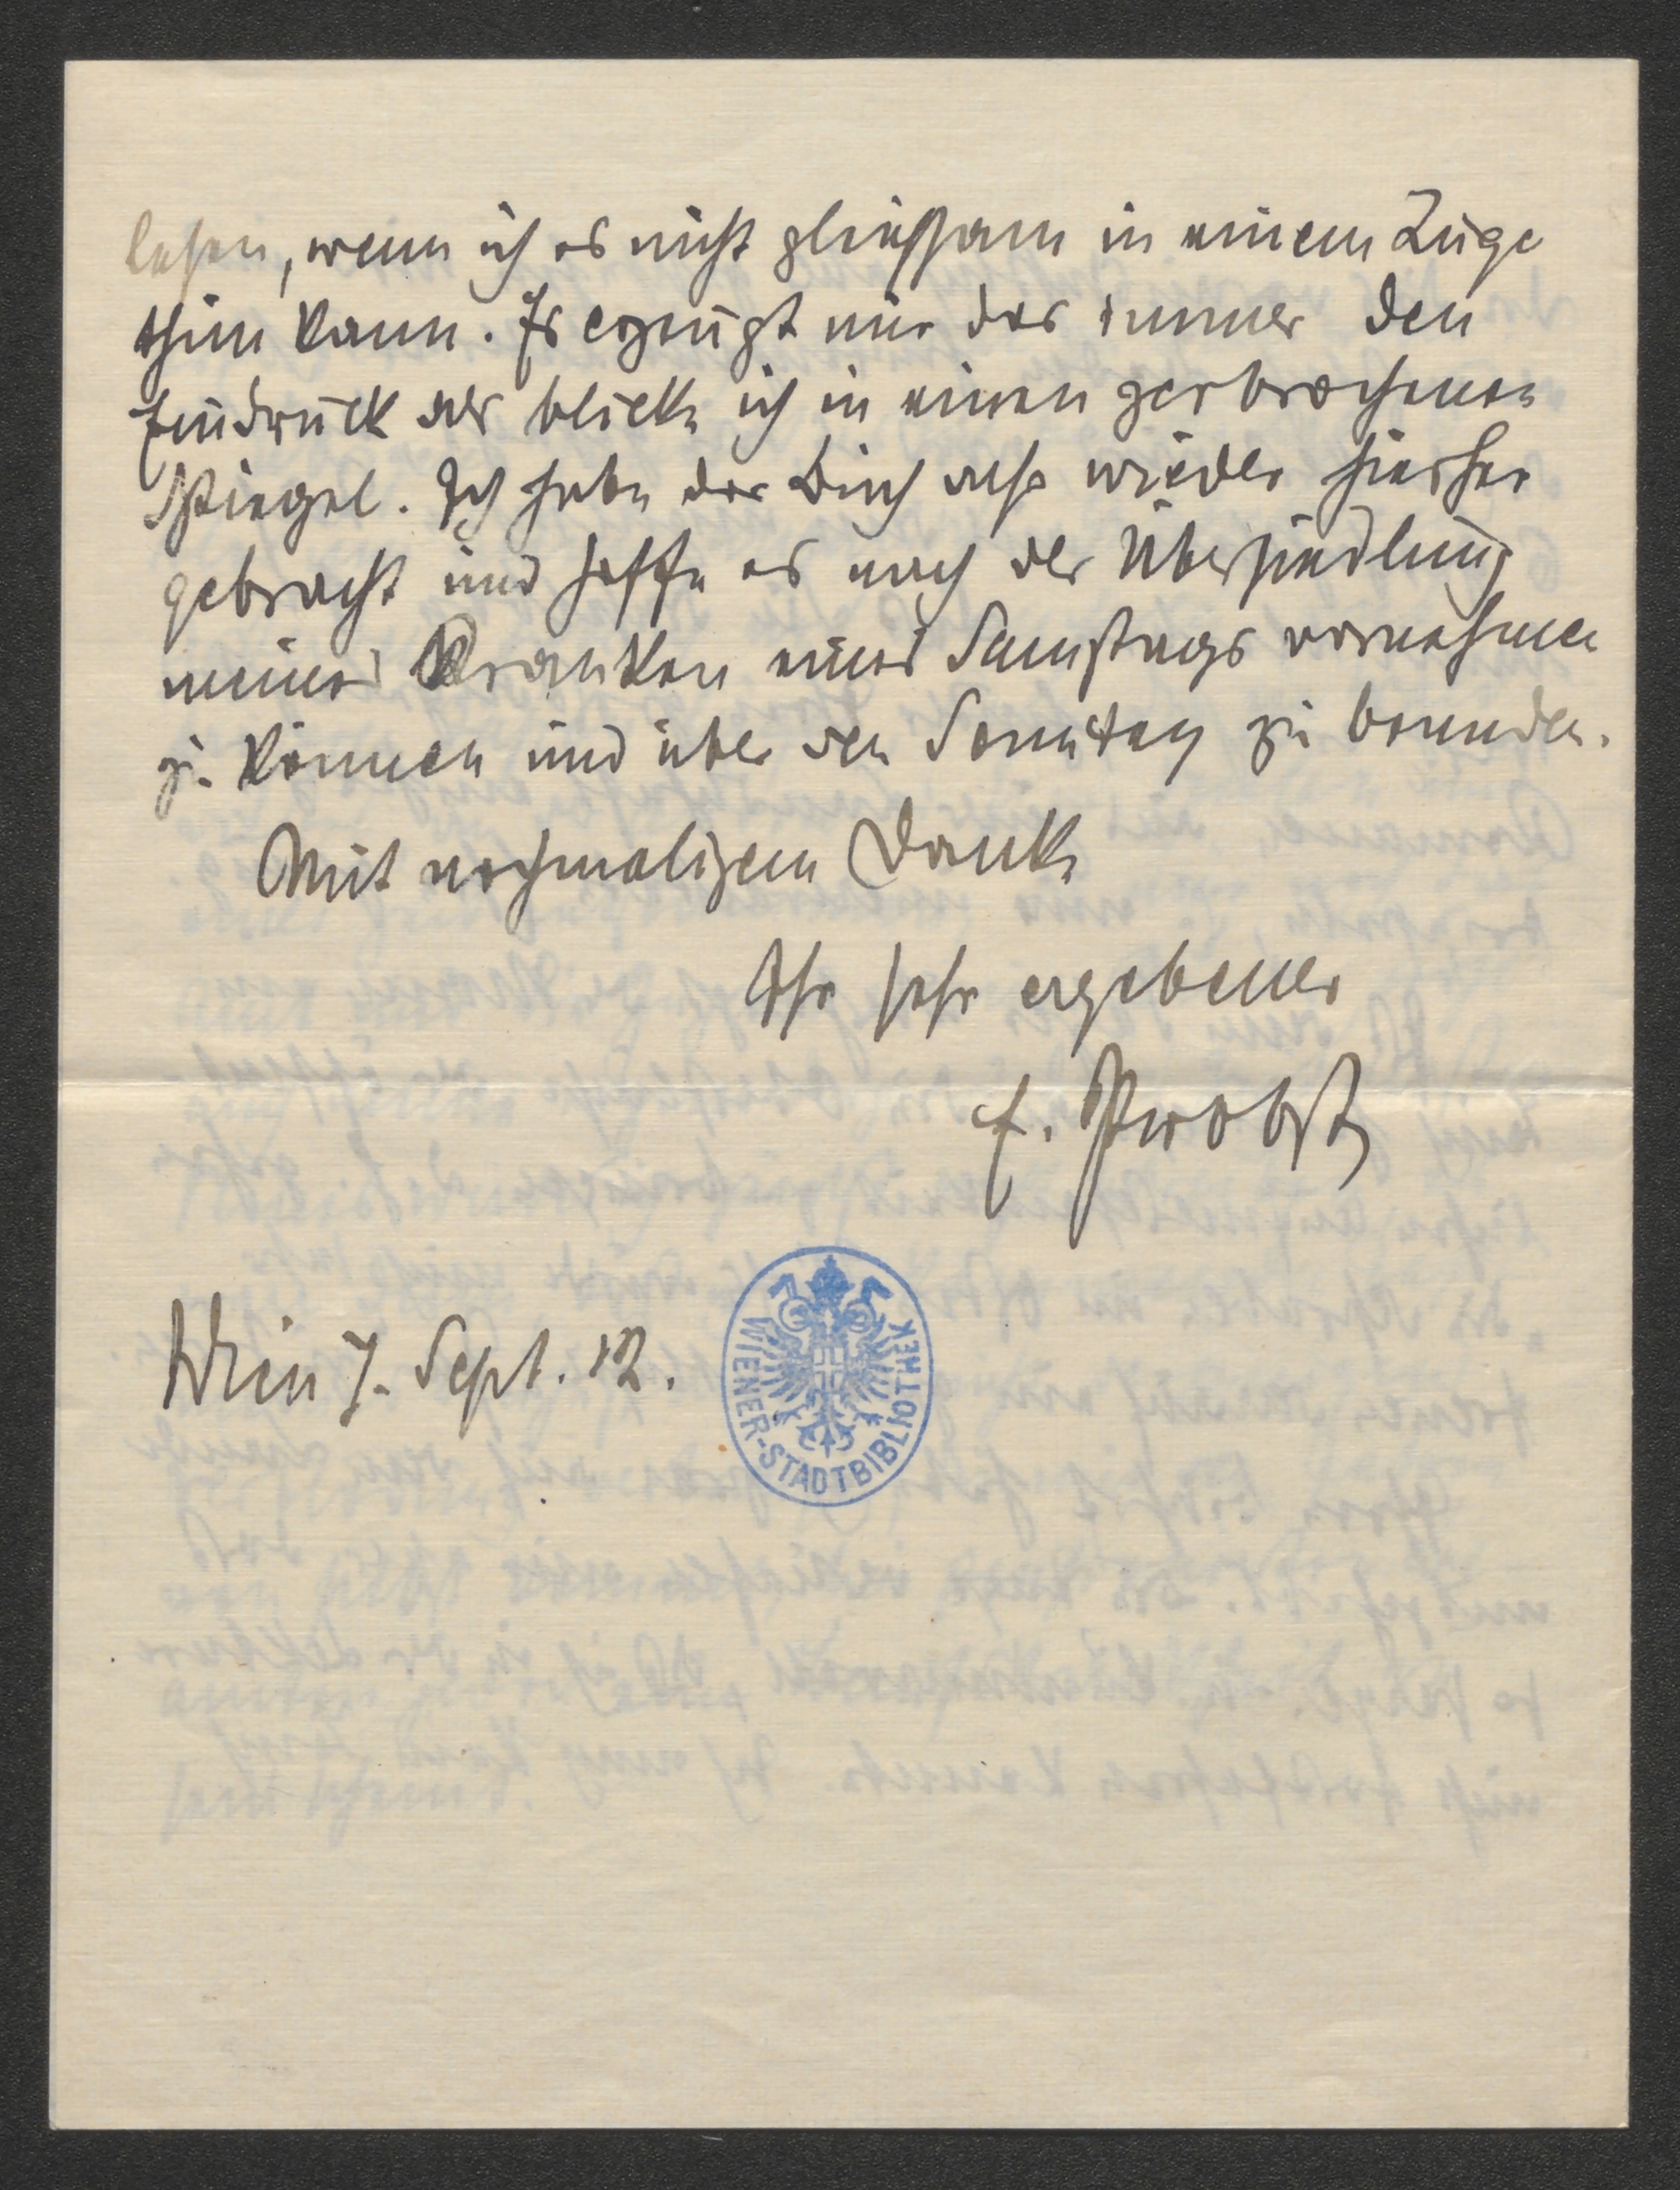 lesen, wenn ich es nicht gleichsam in einem Zuge
thun kann. Es erzeugt mir das immer den
Eindruck als blicke ich in einen zerbrochenen
Spiegel. Ich habe das Buch also wieder hierher
gebracht und hoffe es nach der Übersiedlung
meiner Kranken eines Samstags vornehmen
zu können und über den Sonntag zu beenden.
Mit nochmaligem Danke
Ihr sehr ergebener
E. Probst
Wien 7. Sept. 12.
WIENER-STADTBIBLIOTHEK